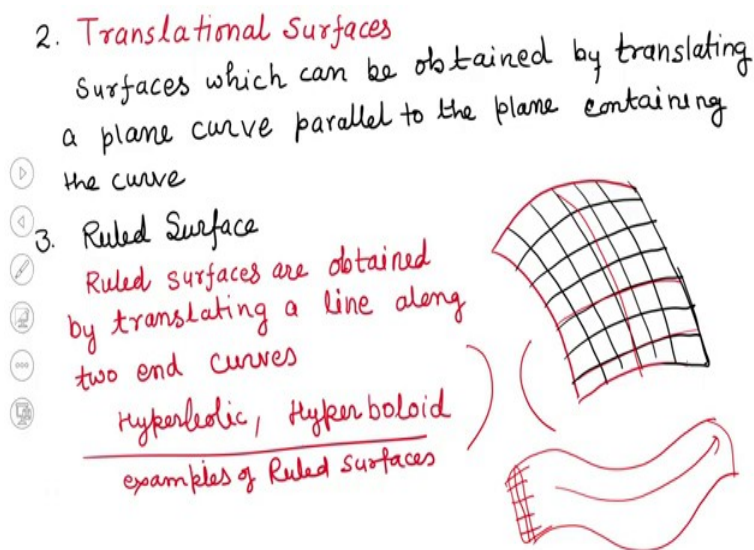 2. Translational Surfaces
Surfaces which can be obtained by translating
a plane curve parallel to the plane containing
the curve
3. Ruled Surface
Ruled surfaces are obtained
by translating a line along
two end curves
Hyperbolic, Hyperboloid
examples of Ruled Surfaces